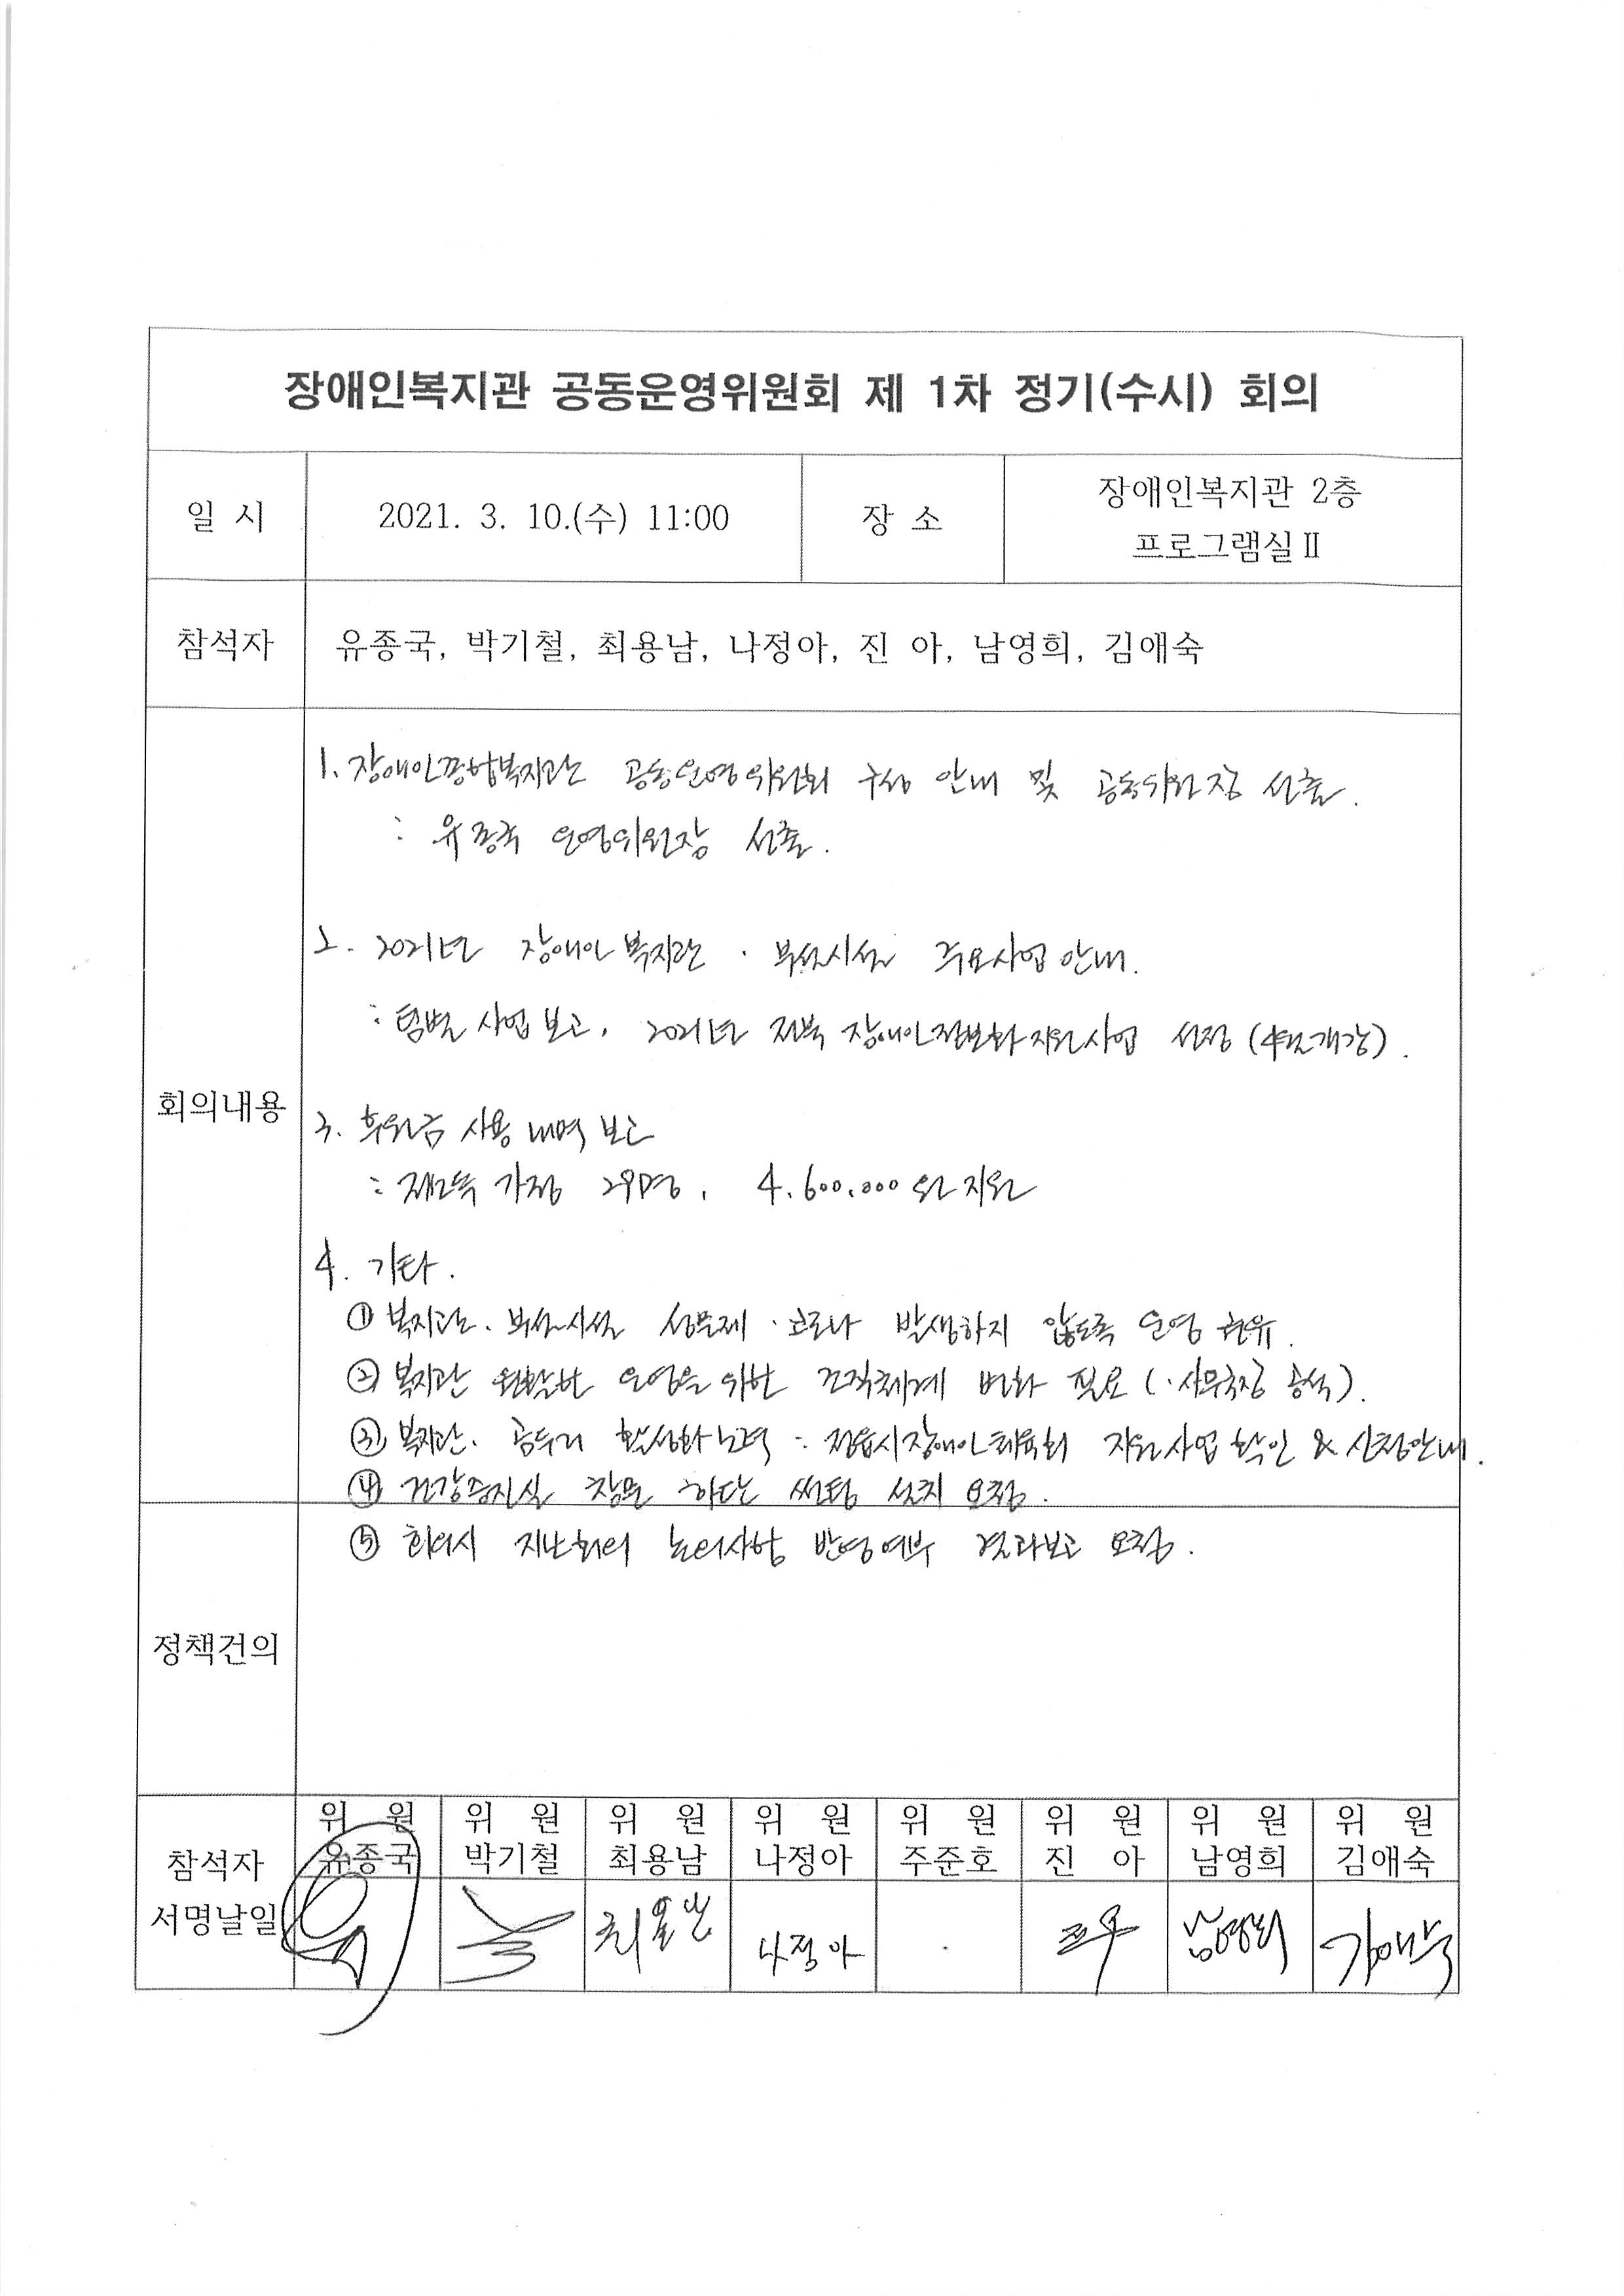 장애인복지관 공동운영위원회 제 1차 정기(수시) 회의
일 시
2021. 3. 10.(수) 11:00
장 소
장애인복지관 2층
프로그램실Ⅱ
참석자
유종국, 박기철, 최용남, 나정아, 진 아, 남영희, 김애숙
회의내용
1. 장애인종합복지관 공동운영위원회 구성 안내 및 공동위원장 선출.
: 유종국 운영위원장 선출.
2. 2021년 장애인복지관 · 부설시설 주요사업 안내.
: 팀별 사업 보고, 2021년 전북 장애인정보화지원사업 선정 (4월개강).
3. 후원금 사용 내역 보고
: 저소득 가정 29명, 4.600.000원 지원
4. 기타.
① 복지관 · 부설시설 성문제 · 코로나 발생하지 않도록 운영 권유.
② 복지관 원활한 운영을 위한 조직체계 변화 필요 (·사무국장 공석).
③ 복지관 · 곰두리 활성화노력 : 정읍시장애인체육회 지원사업 확인 & 신청안내.
④ 건강증진실 창문 하단 썬팅 설치 요청.
⑤ 회의시 지난회의 논의사항 반영여부 결과보고 요청.
정책건의
참석자
서명날일
위 원 위 원 위 원 위 원 위 원 위 원 위 원 위 원
유종국 박기철 최용남 나정아 주준호 진 아 남영희 김애숙
최용남 나정아 남영희 김애숙